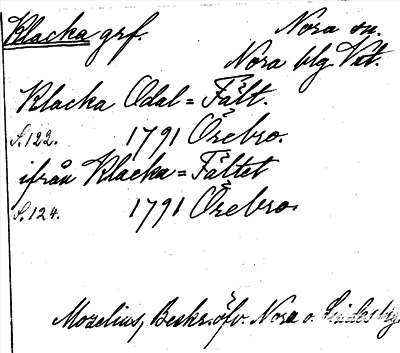 Klacka grf. Nora sn.
Nora blg Vstl.
Klacka Odal = Fält.
S. 122. 1791 Örebro.
ifrån Klacka = Fältet
S. 124. 1791 Örebro.
Mozelius, Beskr. öfv. Nora o. Lindes bg.